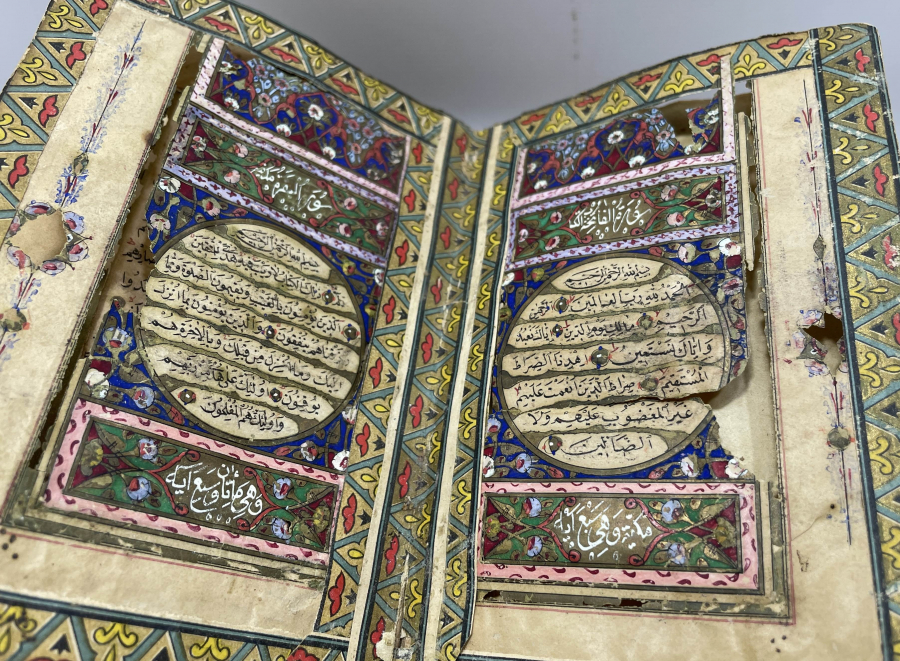 سورة الفاتحة
بسم الله الرحمن الرحيم
الحمد لله رب العالمين الرحمن
الرحيم مالك يوم الدين اياك نعبد
واياك نستعين اهدنا الصراط
المستقيم صراط الذين انعمت عليهم
غير المغضوب عليهم ولا
الضالين
مكية وهي سبع آية
سورة البقرة
بسم الله الرحمن الرحيم
الم ذلك الكتاب لا ريب فيه هدى للمتقين
الذين يؤمنون بالغيب ويقيمون الصلوة ومما
رزقناهم ينفقون والذين يؤمنون بما انزل
اليك وما انزل من قبلك وبالاخرة هم
يوقنون اولئك على هدى من ربهم
واولئك هم المفلحون
وهي مأتان وسبع آية